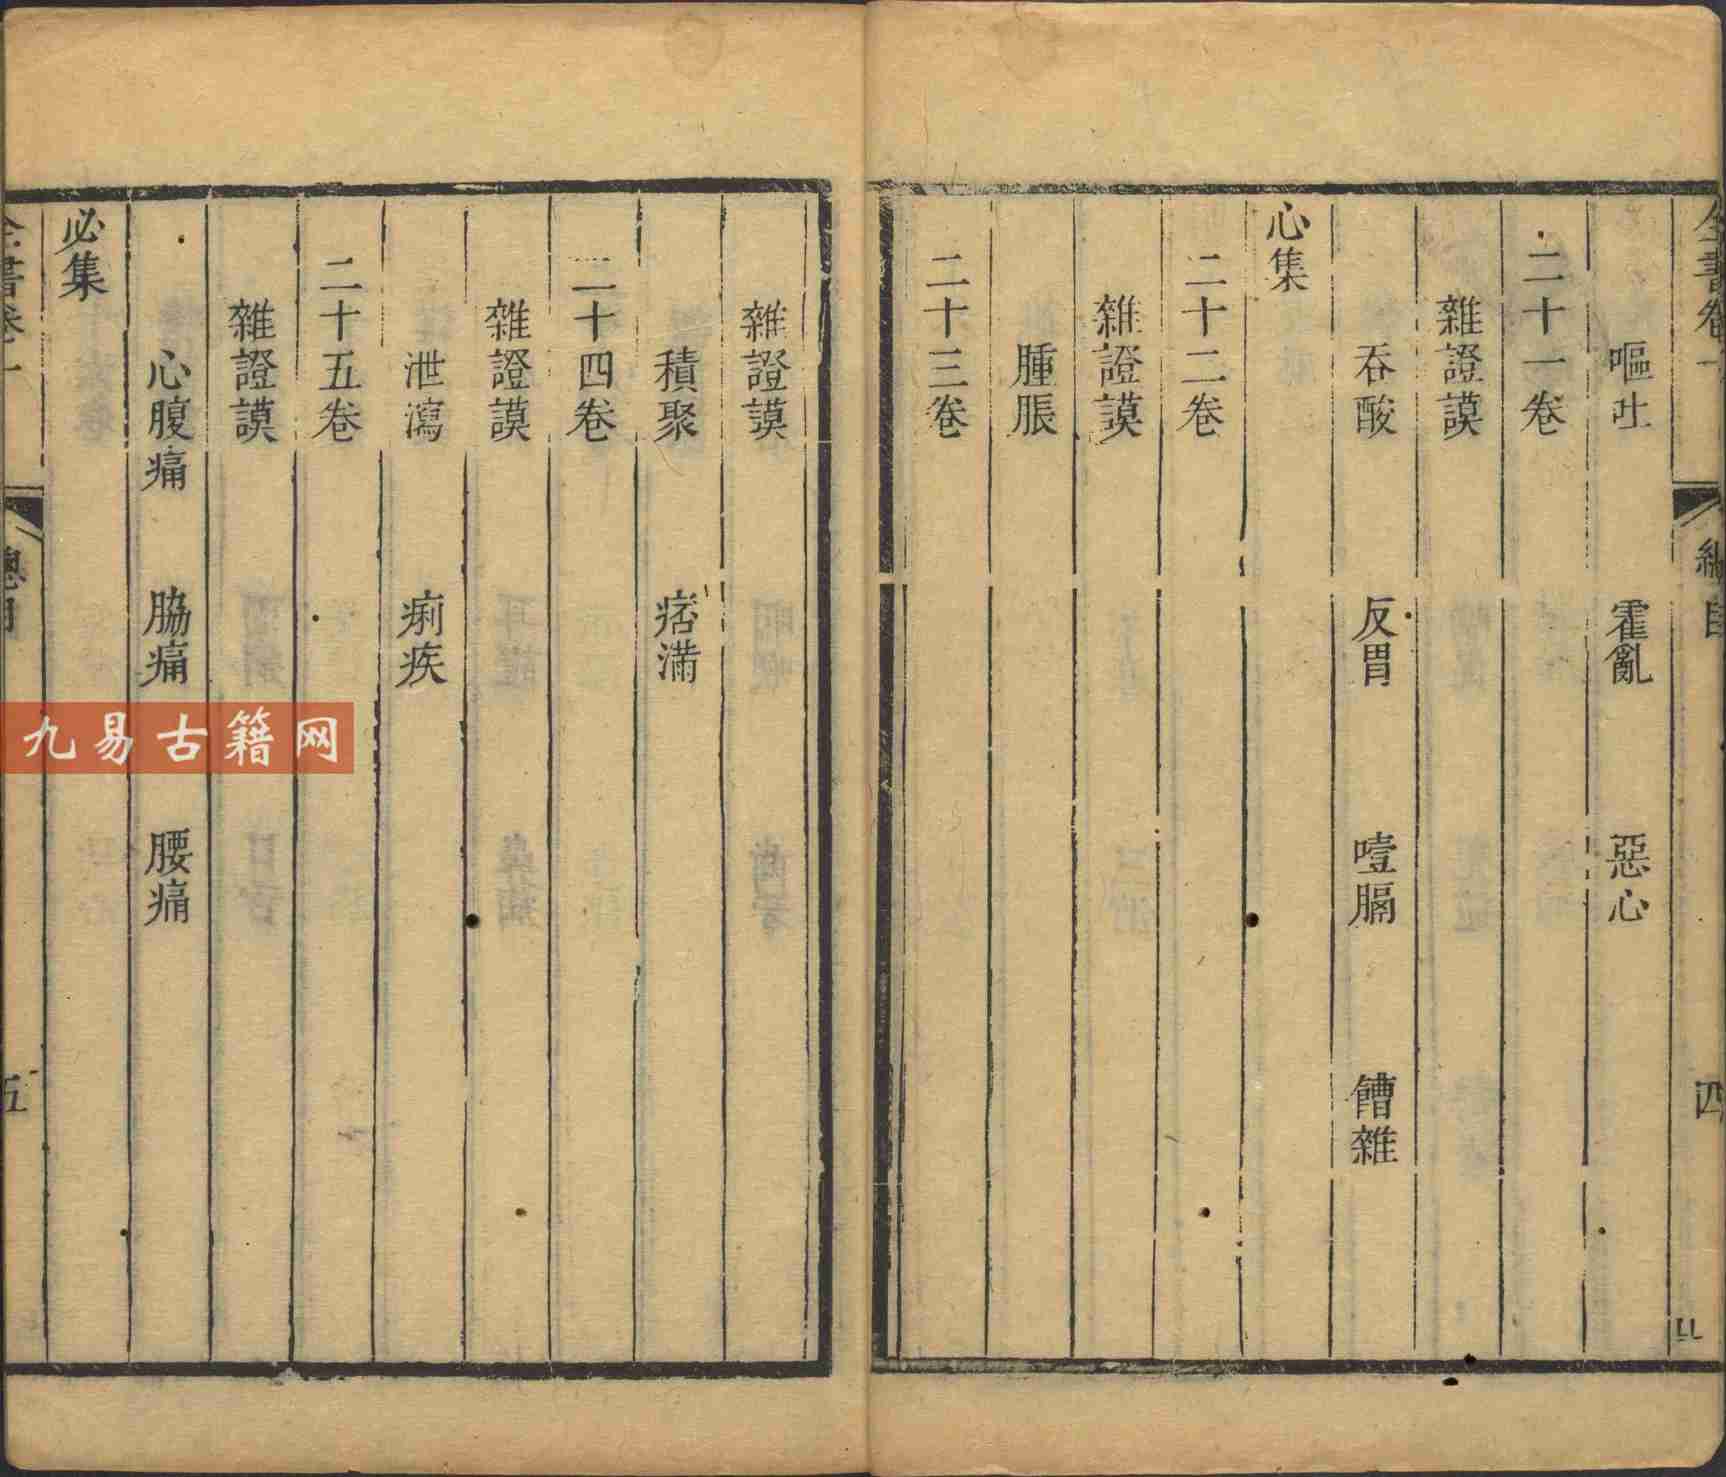 全書卷一 總目 四
嘔吐 霍亂 惡心
二十一卷
雜證謨
吞酸 反胃 噎膈 饋雜
心集
二十二卷
雜證謨
腫脹
二十三卷
雜證謨
積聚 痞滿
二十四卷
雜證謨
泄瀉 痢疾
二十五卷
雜證謨
心腹痛 脇痛 腰痛
必集
全書卷一 總目 五
九易古籍网